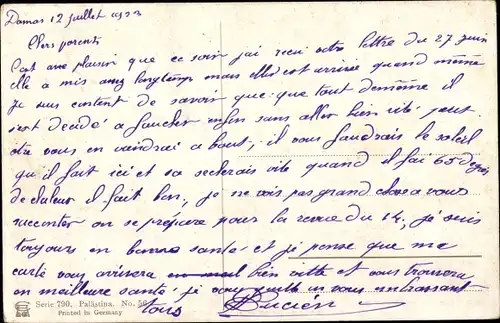 Damas 12 juillet 1923
Chers parents
C'est avec plaisir que ce soir j'ai recu votre lettre du 27 juin
elle a mis assez longtemps mais elle est arrivée quand même
Je suis content de savoir que tout de même il
s'est décidé a faucher enfin sans aller bien vite peut
être vous en viendrai a bout, il vous faudrais le soleil
qu'il fait ici et sa secherais vite quand il fai 65 degrés
de chaleur il fait bon, je ne vois pas grand chose a vous
raconter on se prépare pour la revue du 14, je suis
toujours en bonne santé et je pense que ma
carte vous arrivera bien vitte et vous trouvera
en meilleure santé je vous quitte en vous embrassant
tous Lucien
Serie 790, Palästina. No. 56
Printed in Germany